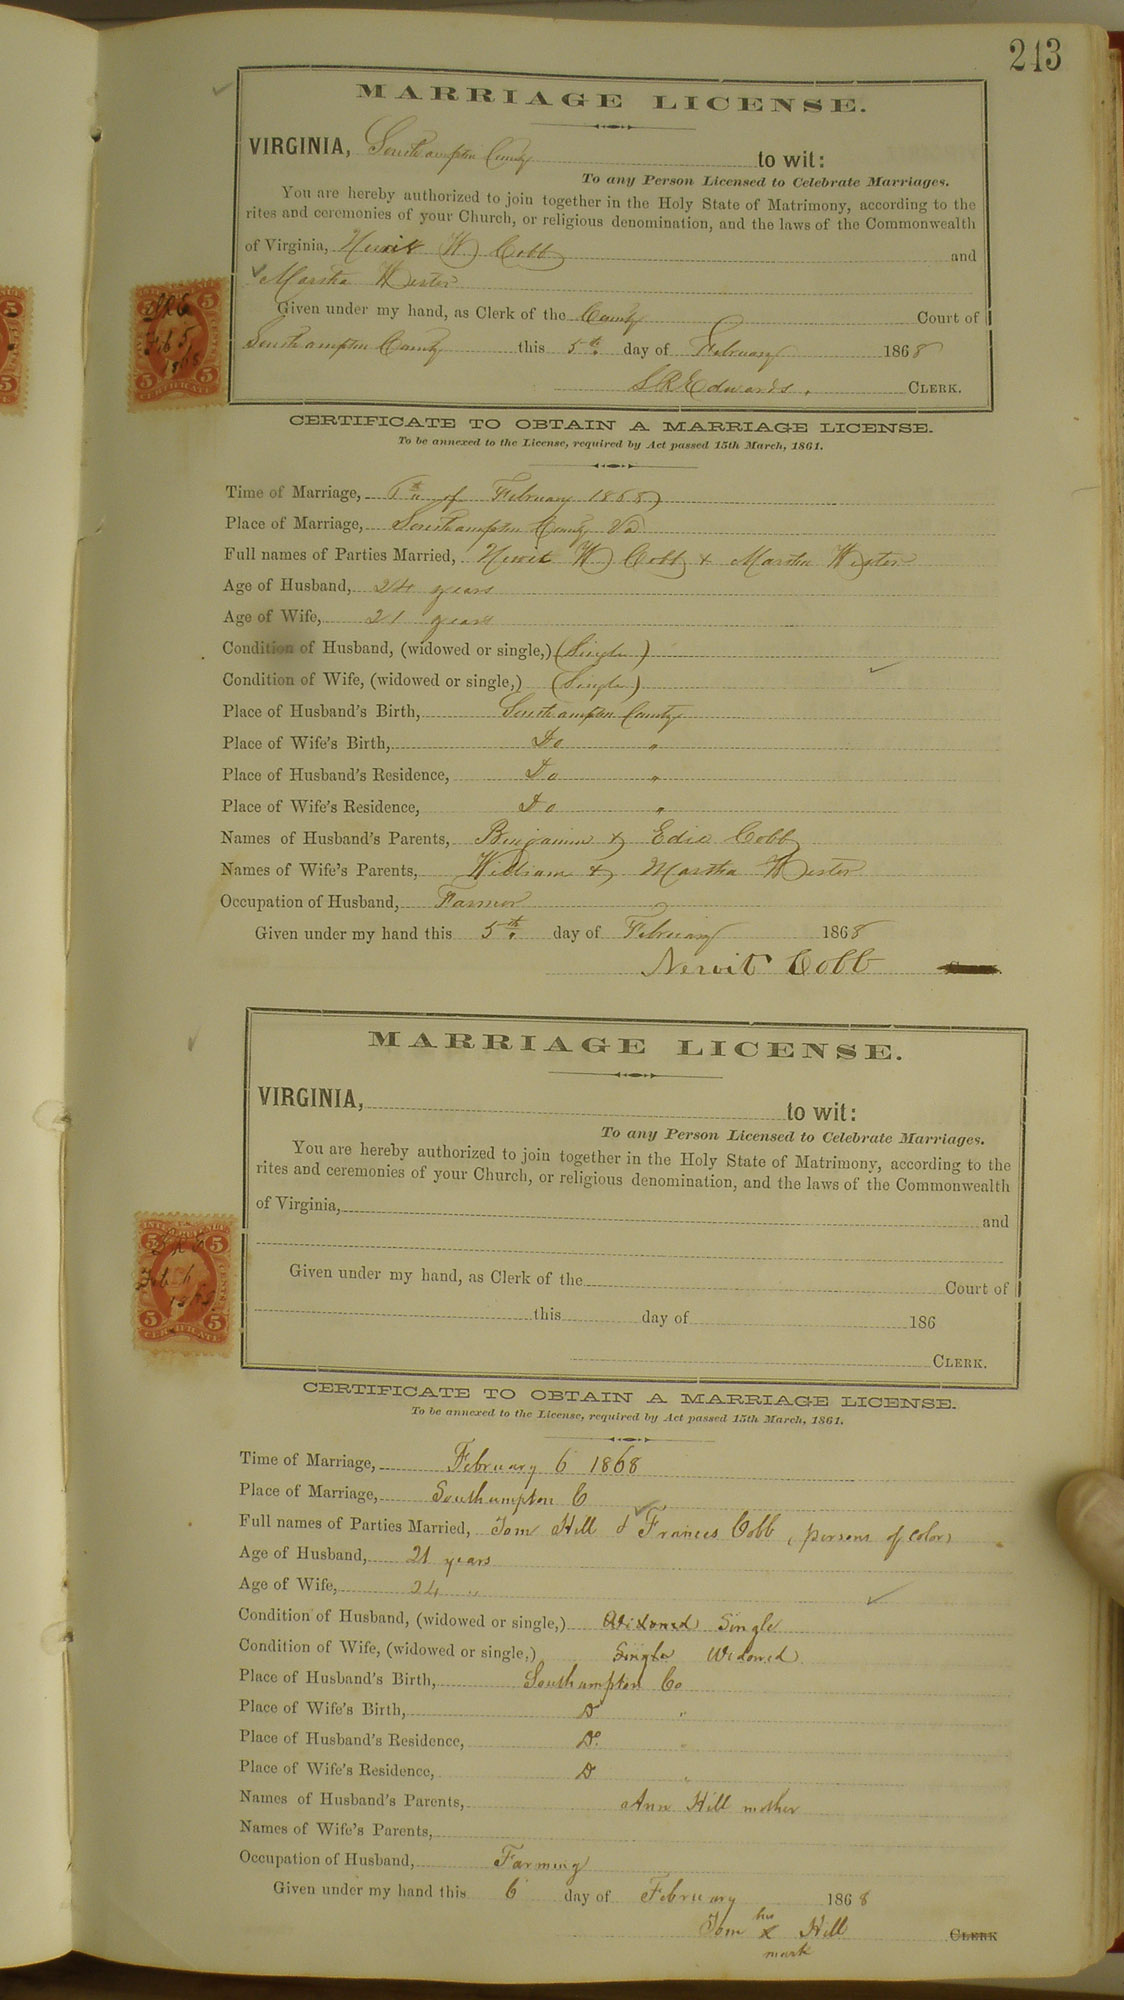 243
MARRIAGE LICENSE.
VIRGINIA, Southampton County to wit:
To any Person Licensed to Celebrate Marriages.
You are hereby authorized to join together in the Holy State of Matrimony, according to the
rites and ceremonies of your Church, or religious denomination, and the laws of the Commonwealth
of Virginia, Newit W Cobb and
Martha Wester
Given under my hand, as Clerk of the County Court of
Southampton County this 5th day of February 1868
LREdwards. CLERK.
5 5
Feb 5
1868
5 5
CERTIFICATE
CERTIFICATE TO OBTAIN A MARRIAGE LICENSE.
To be annexed to the License, required by Act passed 15th March, 1861.
Time of Marriage, 6th of February 1868
Place of Marriage, Southampton County Va
Full names of Parties Married, Newit W Cobb & Martha Wester
Age of Husband, 24 years
Age of Wife, 21 years
Condition of Husband, (widowed or single,) (Single)
Condition of Wife, (widowed or single,) (Single)
Place of Husband's Birth, Southampton County
Place of Wife's Birth, Do "
Place of Husband's Residence, Do "
Place of Wife's Residence, Do "
Names of Husband's Parents, Benjamin & Edie Cobb
Names of Wife's Parents, William & Martha Wester
Occupation of Husband, Farmer
Given under my hand this 5th day of February 1868
Newit Cobb
MARRIAGE LICENSE.
VIRGINIA, to wit:
To any Person Licensed to Celebrate Marriages.
You are hereby authorized to join together in the Holy State of Matrimony, according to the
rites and ceremonies of your Church, or religious denomination, and the laws of the Commonwealth
of Virginia, and
Given under my hand, as Clerk of the Court of
this day of 186
CLERK.
INTER. REVENUE
5 5
Feb 6
1868
5 5
CERTIFICATE
CERTIFICATE TO OBTAIN A MARRIAGE LICENSE.
To be annexed to the License, required by Act passed 15th March, 1861.
Time of Marriage, February 6 1868
Place of Marriage, Southampton C
Full names of Parties Married, Tom Hill & Frances Cobb (persons of color)
Age of Husband, 21 years
Age of Wife, 24 "
Condition of Husband, (widowed or single,) Widowed Single
Condition of Wife, (widowed or single,) Single Widowed
Place of Husband's Birth, Southampton Co
Place of Wife's Birth, Do "
Place of Husband's Residence, Do "
Place of Wife's Residence, Do "
Names of Husband's Parents, Ann Hill mother
Names of Wife's Parents,
Occupation of Husband, Farming
Given under my hand this 6 day of February 1868
Tom his x mark Hill CLERK